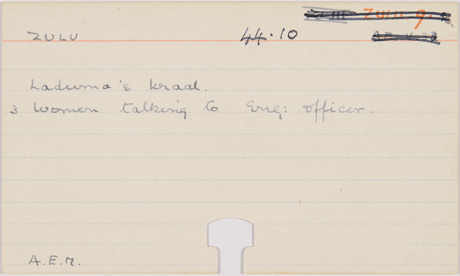 ZULU 44.10 ZULU. 9.
Laduma's kraal.
3 women talking to Eng: officer.
A.E.M.